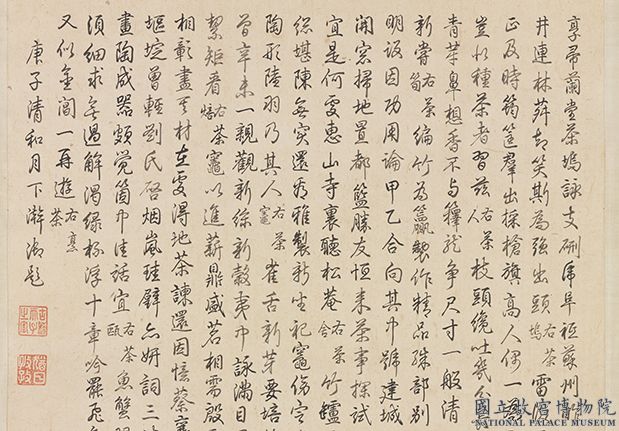 堂茶塢詠支硎虎阜秪蘇州
井連林薛却笑斯為強出頭右茶塢雷後
正及時筠筐群出採槍旗高人偶一
豈以種茶者習茲右茶人枝頭纔吐幾
青芽鼻想香不與籜龍爭尺寸一般清
新嘗右茶筍編竹為籯製作精品殊部別
明詎因功用論甲乙合向其中號建城
開窓掃地置都籃勝友恒來茶事探試
宜是何處惠山寺裏聽松菴右茶舍竹罏
總堪陳無突還為雅製新生祀竈傷
陶形陸羽乃其人右茶竈雀舌新芽要焙
曾辛未一親觀新絲新穀夷中詠滿目
絜矩看右茶焙茶竈以進薪鼎盛茗相需殷
相彰盡在處得地茶諫還因憶蔡襄
曾輕劉氏烟嵐珪璧亦妍詞三
畫陶成器頗覺箇中佳話宜右茶甌魚蟹
須細求無過解渴綠杯浮十章吟罷飛
又似金閶一再遊右烹茶
庚子清和月下澣御題
國立故宮博物院
NATIONAL PALACE MUSEUM